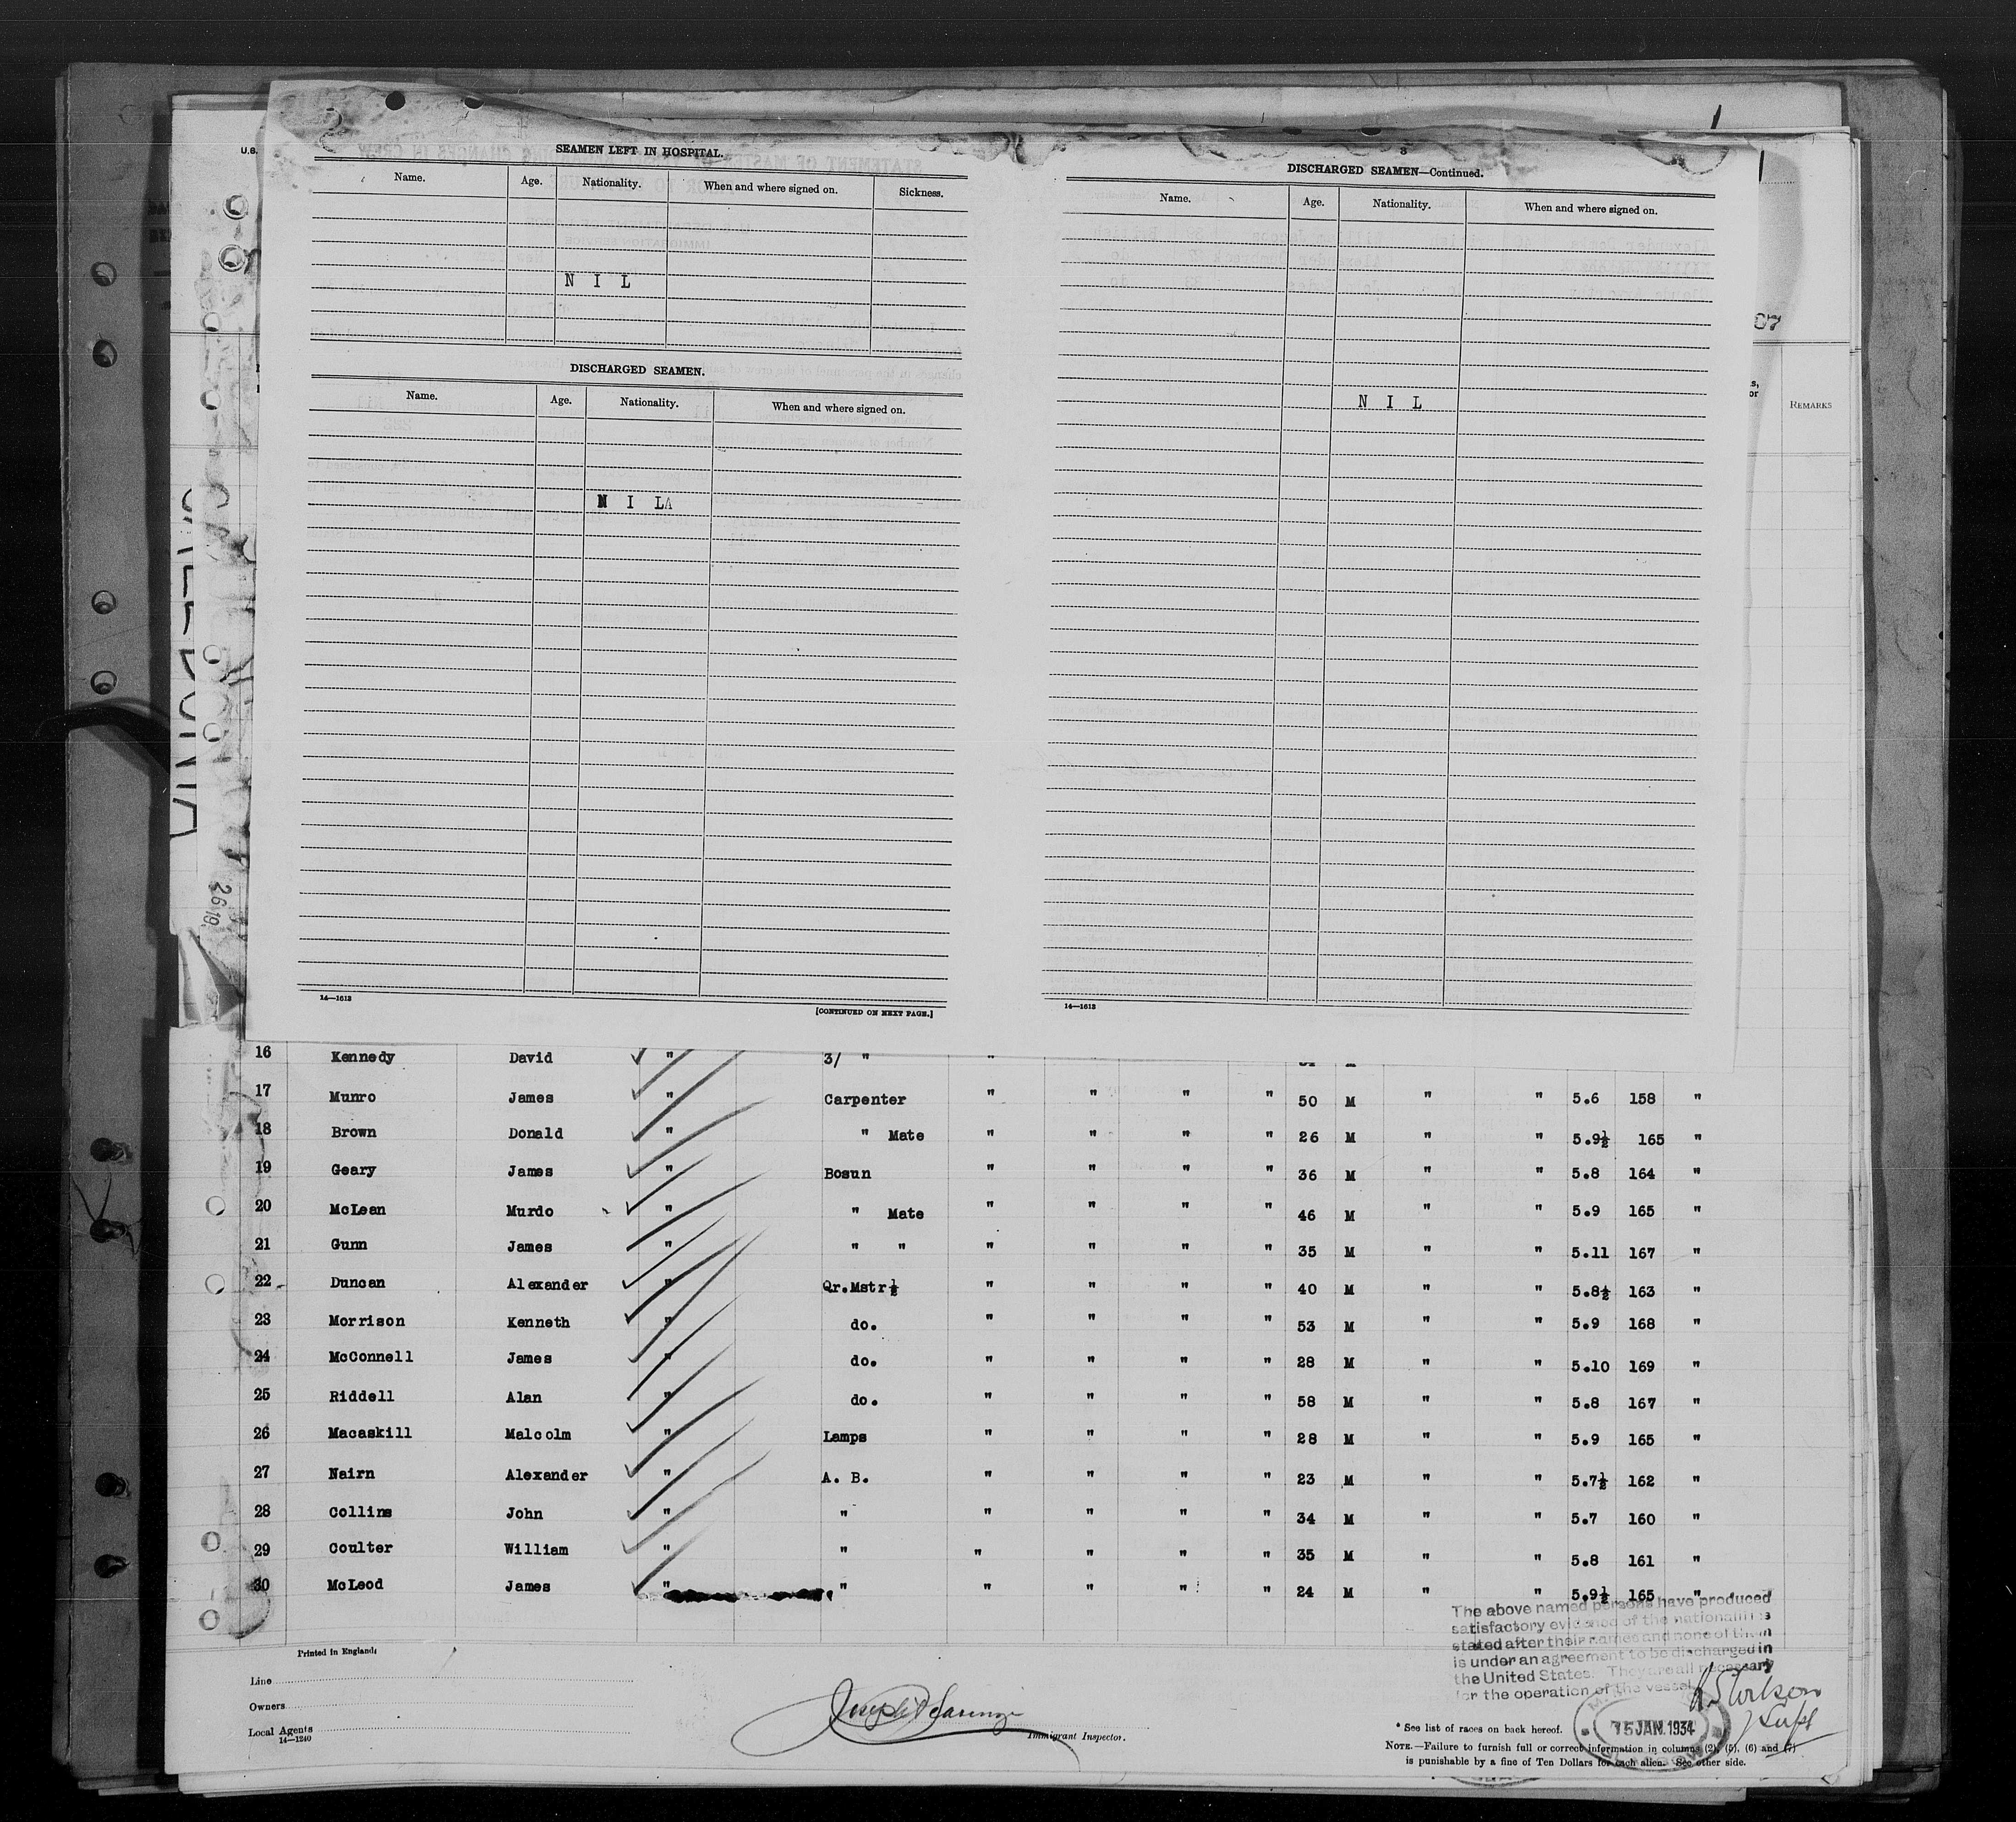 U.S.
SEAMEN LEFT IN HOSPITAL.
Name. Age. Nationality. When and where signed on. Sickness.
N I L
DISCHARGED SEAMEN.
Name. Age. Nationality. When and where signed on.
N I L
14—1613
[CONTINUED ON NEXT PAGE.]
3
DISCHARGED SEAMEN—Continued.
Name. Age. Nationality. When and where signed on.
N I L
14—1613
07
REMARKS
16 Kennedy David " 3/ " "
17 Munro James " Carpenter " " " " 50 M " " 5.6 158 "
18 Brown Donald " " Mate " " " " 26 M " " 5.9½ 165 "
19 Geary James " Bosun " " " " 36 M " " 5.8 164 "
20 McLean Murdo " " Mate " " " " 46 M " " 5.9 165 "
21 Gunn James " " " " " " " 35 M " " 5.11 167 "
22 Duncan Alexander " Qr.Mstr½ " " " " 40 M " " 5.8½ 163 "
23 Morrison Kenneth " do. " " " " 53 M " " 5.9 168 "
24 McConnell James " do. " " " " 28 M " " 5.10 169 "
25 Riddell Alan " do. " " " " 58 M " " 5.8 167 "
26 Macaskill Malcolm " Lamps " " " " 28 M " " 5.9 165 "
27 Nairn Alexander " A. B. " " " " 23 M " " 5.7½ 162 "
28 Collins John " " " " " " 34 M " " 5.7 160 "
29 Coulter William " " " " " " 35 M " " 5.8 161 "
30 McLeod James " " " " " " 24 M " " 5.9½ 165 "
The above named persons have produced
satisfactory evidence of the nationalities
stated after their names and none of them
is under an agreement to be discharged in
the United States. They are all necessary
for the operation of the vessel
Printed in England
Line
Owners
Local Agents
14—1240
Immigrant Inspector.
15 JAN. 1934
* See list of races on back hereof.
NOTE.—Failure to furnish full or correct information in columns (2), (5), (6) and (7)
is punishable by a fine of Ten Dollars for each alien. See other side.